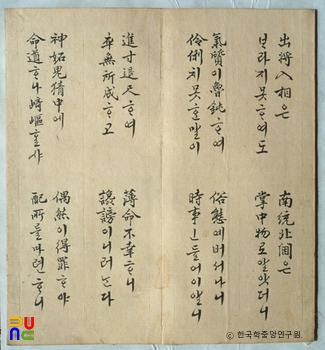 出將入相은
ᄇᆞ라지 못ᄒᆞ여도
南統北閫은
掌中物로 알앗더니
氣質이 魯鈍ᄒᆞ여
伶俐치 못ᄒᆞᆫ 말이
俗態예 버서나니
時事ㅣ 들어이 알니
進寸退尺ᄒᆞ여
卒無所成ᄒᆞ고
薄命不幸ᄒᆞ니
讒謗이 니러ᄂᆞᆫ다
神妬鬼猜中에
命道ᄒᆞ나 崎嶇ᄒᆞᆯ샤
偶然이 得罪ᄒᆞ야
配所를 마련ᄒᆞ니
한국학중앙연구원